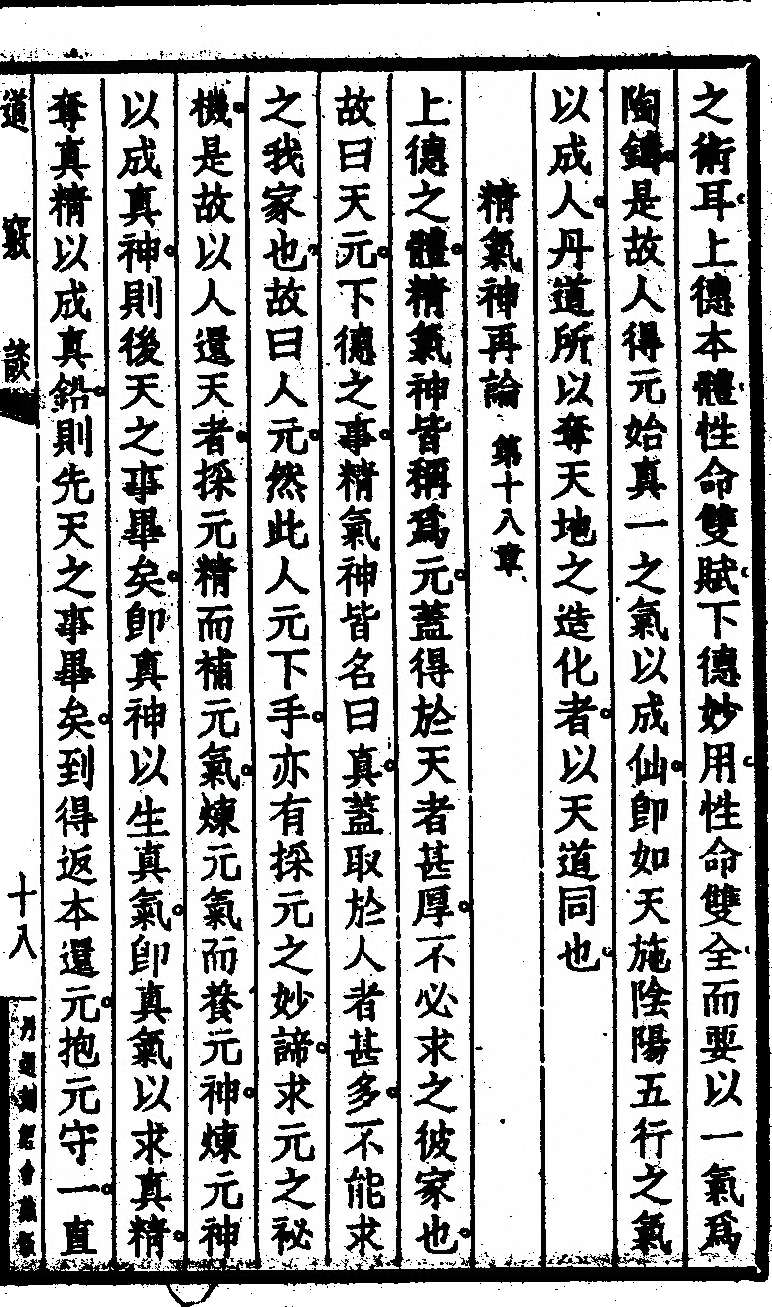 之術耳上德本體性命雙賦下德妙用性命雙全而要以一氣爲
陶鑄是故人得元始真一之氣以成仙卽如天施陰陽五行之氣
以成人丹道所以奪天地之造化者以天道同也
精氣神再論 第十八章
上德之體精氣神皆稱爲元蓋得於天者甚厚不必求之彼家也
故曰天元下德之事精氣神皆名曰真蓋取於人者甚多不能求
之我家也故曰人元然此人元下手亦有採元之妙諦求元之祕
機是故以人還天者採元精而補元氣煉元氣而養元神煉元神
以成真神則後天之事畢矣卽真神以生真氣卽真氣以求真精
奪真精以成真鉛則先天之事畢矣到得返本還元抱元守一直
道竅談
十八